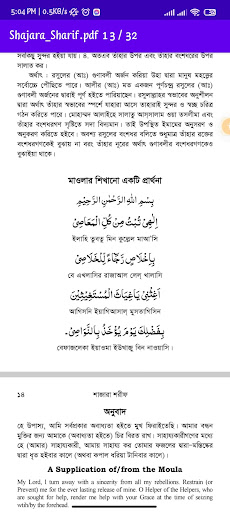 5:04 PM | 0.5KB/s
33
Shajara_Sharif.pdf 13 / 32
সবকিছু সুন্দর হইয়া যায়। ৪. অতএব তাঁহার উপর এবং তাঁহার বংশধরের উপর
সালাত কর।
অর্থাৎ : রসুলের (আঃ) গুণাবলী অর্জন করিয়া উহা দ্বারা মানুষ মহত্ত্বের
সর্বোচ্চে পৌঁছিতে পারে। আলীর (আঃ) মত একজন পূর্ণচন্দ্র রসুলের (আঃ)
গুণাবলী অর্জনের দ্বারাই পূর্ণ হইতে পারিয়াছেন। রসুলাল্লাহর স্বভাবের অনুশীলন
দ্বারা অর্থাৎ তাঁহার স্বভাবের স্পর্শে যাহারা আসে তাহারাই সুন্দর ও স্বচ্ছ চরিত্র
গঠন করিতে পারে। মোহাম্মদ আলাইহে সালাতু আসসালাম ওয়া তসলীমা এবং
তাঁহার বংশধরগণ সৃষ্টিতে সদা বিদ্যমান। তাই উপস্থিত ইমামের অনুসরণ ও
অনুকরণ করিতে হইবে। অবশ্য রসুলের বংশধর বলিতে শুধুমাত্র তাঁহার রক্তের
বংশধরগণকেই বুঝায় না বরং তাঁহার নূরের অর্থাৎ গুণাবলীর বংশধরগণকেও
বুঝাইয়া থাকে।
মাওলার শিখানো একটি প্রার্থনা
بِسْمِ اللهِ الرَّحْمٰنِ الرَّحِيْمِ
اِلٰهِىْ تُبْتُ مِنْ كُلِّ الْمَعَاصِىْ
ইলাহি তুবতু মিন কুল্লেল মাআ'সি
بِاِخْلَاصِ رَجَّاءً لِلْخَلَاصِىْ
বে এখলাসির রাজাআল লেল্ খালাসি
اَغِثْنِىْ يَاغِيَاثَ الْمُسْتَغِيْثِيْنَ
আগিসনি ইয়াগিআসাল্ মুসতাগিসিন
بِفَضْلِكَ يَوْمَ يُؤْخَذُ بِالنَّوَاصِىْ۔
বেফাজলেকা ইয়াওমা ইউখাজু বিন নাওয়াসি।
১৪ শাজারা শরীফ
অনুবাদ
হে উপাস্য, আমি সর্বপ্রকার অবাধ্যতা হইতে মুখ ফিরাইতেছি। আমার বন্ধন
মুক্তির জন্য আমাকে (অবাধ্যতা হইতে) চির বিরত রাখ। সাহায্যকারীগণের মধ্যে
হে (আমার) সাহায্যকারী, আমায় সাহায্য কর তোমার ফজলের দ্বারা-মস্তিষ্কের
দ্বারা ধৃত হইবার কালে (অথবা কপাল ধরিয়া টানিবার কালে)।
A Supplication of/from the Moula
My Lord, I turn away with a sincerity from all my rebellions. Restrain (or
Prevent) me for the ever lasting release of mine. O Helper of the Helpers, who
are sought for help, render me help with your Grace at the time of seizing
with/by the forehead.